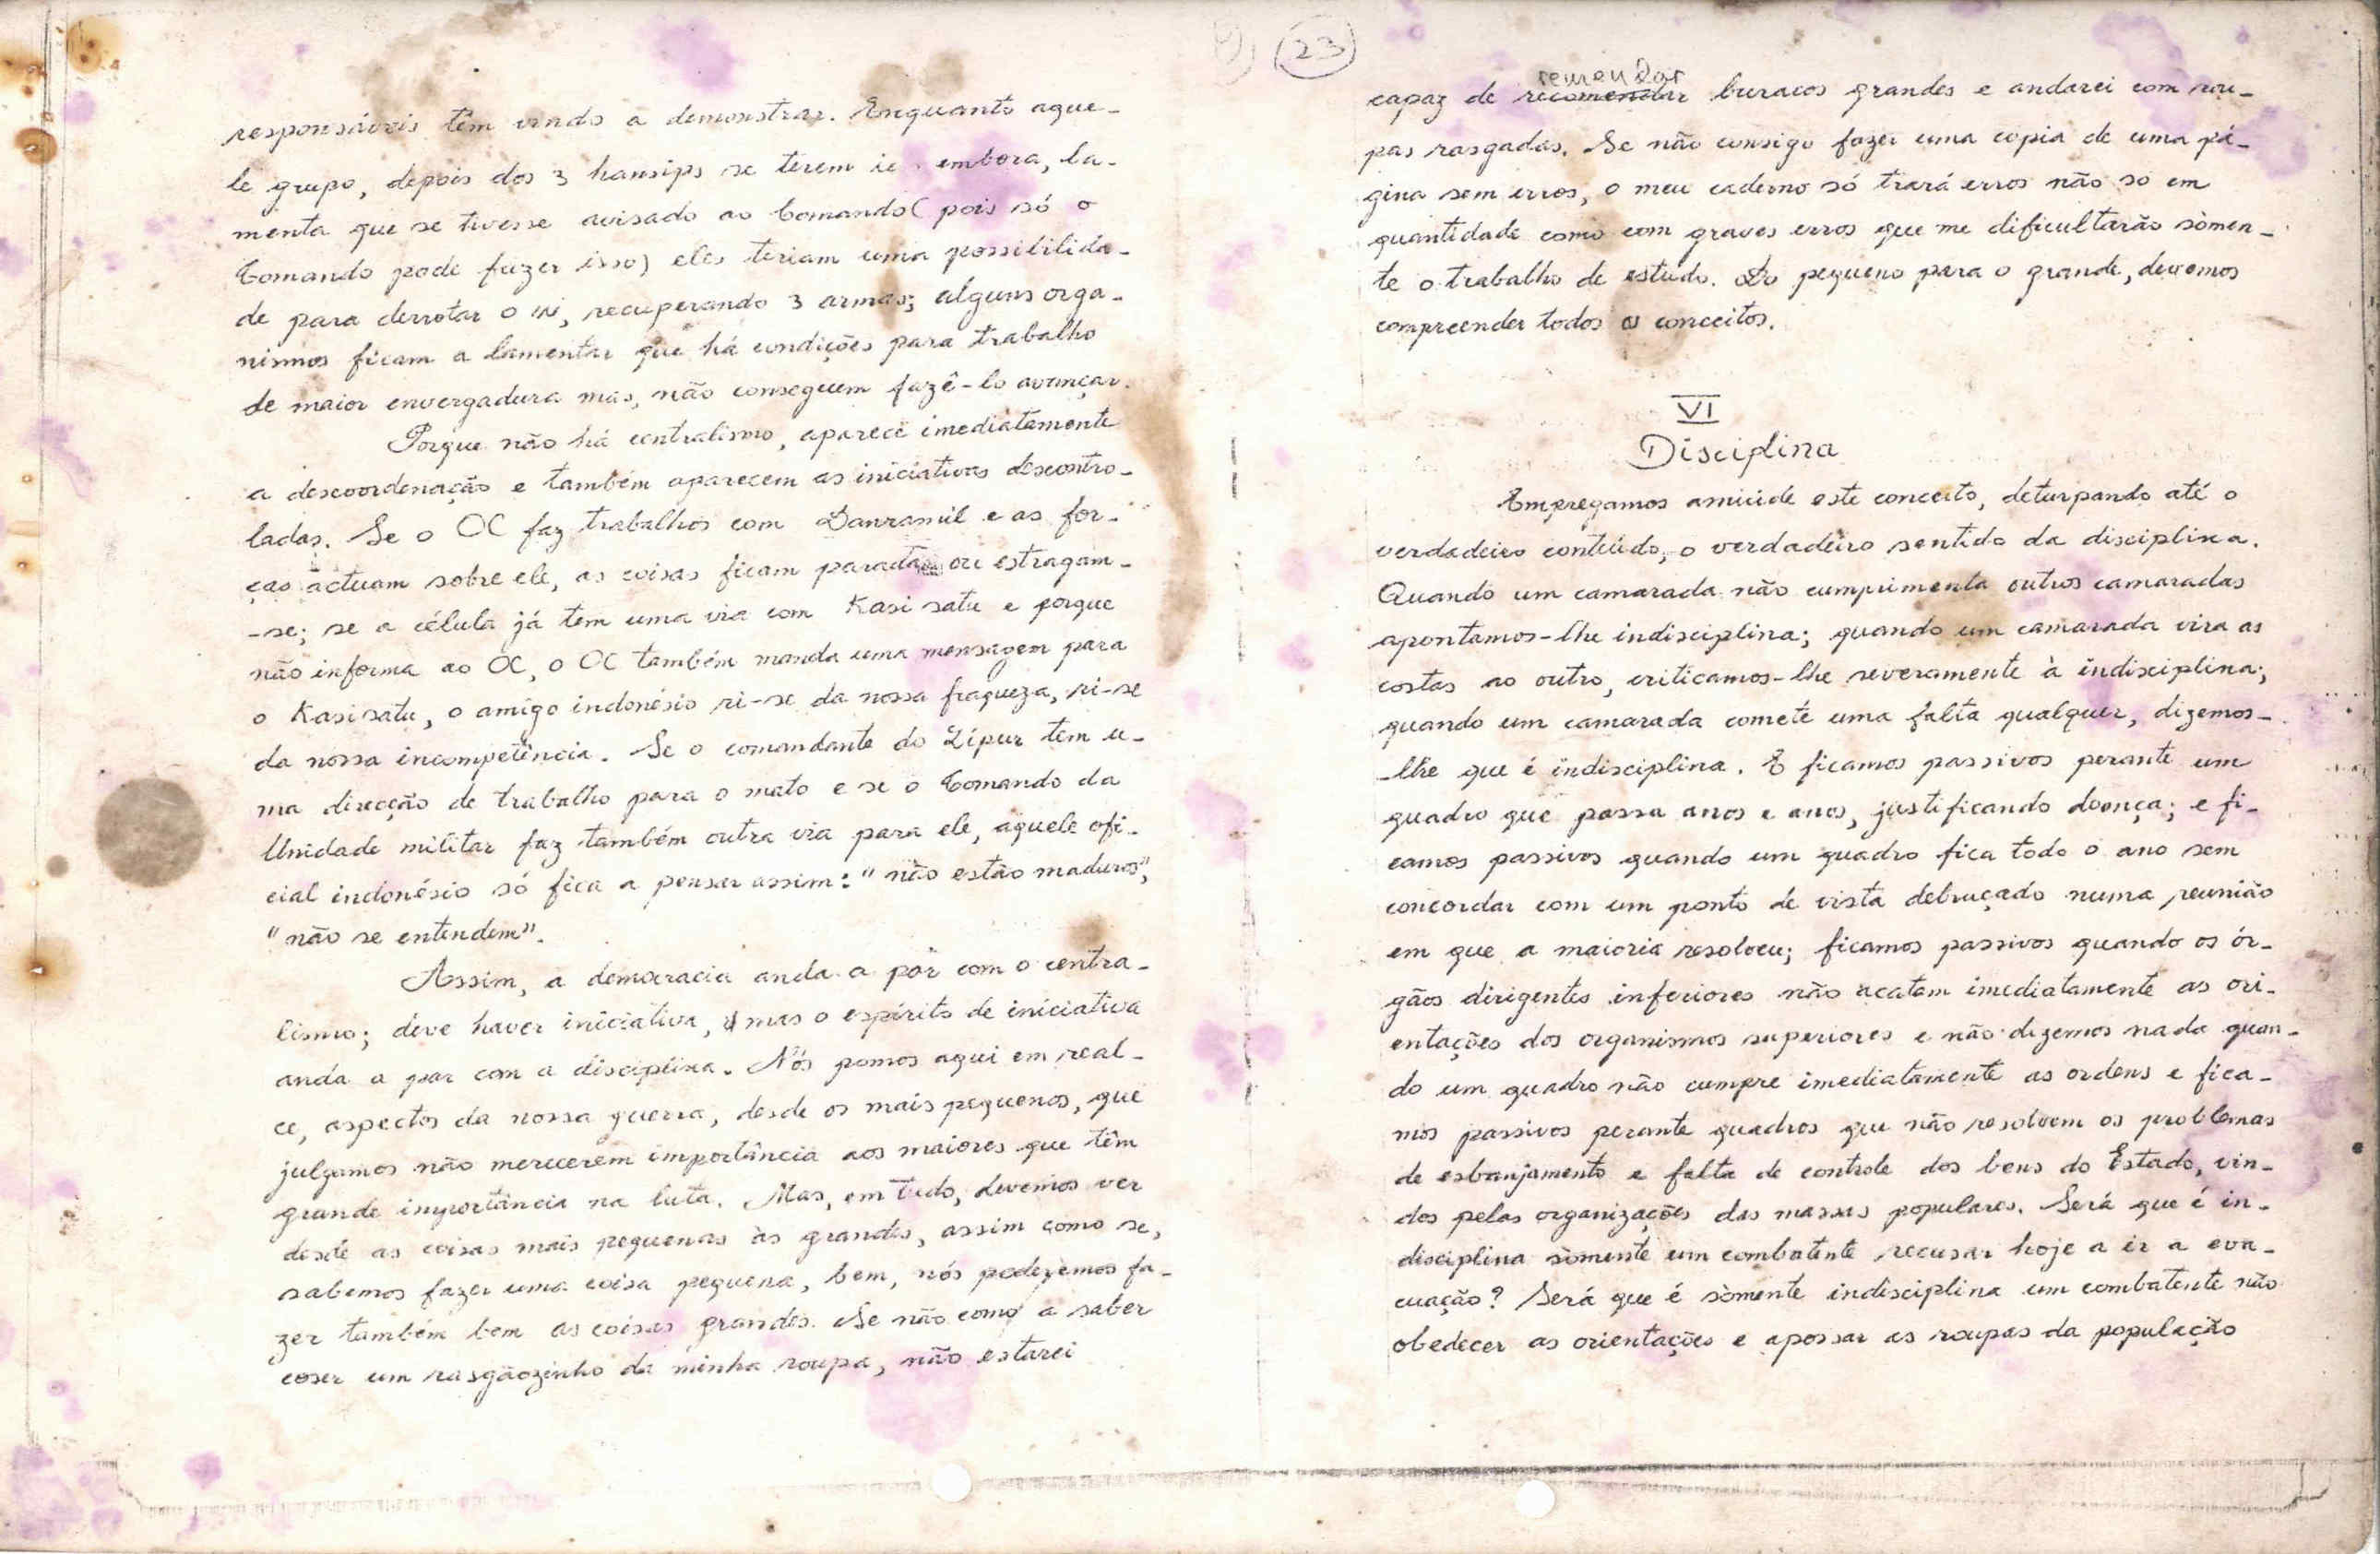 responsáveis têm vindo a demonstrar. Enquanto aque-
le grupo, depois dos 3 hansips se terem embora, la-
menta que se tivesse avisado ao Comando (pois só o
Comando pode fazer isso) eles teriam uma possibilida-
de para derrotar o ini, recuperando 3 armas; alguns orga-
nismos ficam a lamentar que há condições para trabalho
de maior envergadura mas, não conseguem fazê-lo avançar.
Porque não há centralismo, aparece imediatamente
a descoordenação e também aparecem as iniciativas descontro-
ladas. Se o OC faz trabalhos com Danramil e as for-
ças actuam sobre ele, as coisas ficam paradas ou estragam-
-se; se a célula já tem uma via com Kasi satu e porque
não informa ao OC, o OC também manda uma mensagem para
o Kasi satu, o amigo indonésio ri-se da nossa fraqueza, ri-se
da nossa incompetência. Se o comandante do Zipur tem u-
ma direcção de trabalho para o mato e se o Comando da
Unidade militar faz também outra via para ele, aquele ofi-
cial indonésio só fica a pensar assim: "não estão maduros",
"não se entendem".
Assim, a democracia anda a par com o centra-
lismo; deve haver iniciativa, mas o espírito de iniciativa
anda a par com a disciplina. Nós pomos aqui em real-
ce, aspectos da nossa guerra, desde os mais pequenos, que
julgamos não merecerem importância aos maiores que têm
grande importância na luta. Mas, em tudo, devemos ver
desde as coisas mais pequenas às grandes, assim como se,
sabemos fazer uma coisa pequena, bem, nós poderemos fa-
zer também bem as coisas grandes. Se não começo a saber
coser um rasgãozinho da minha roupa, não estarei
23
remendar
capaz de recomendar buracos grandes e andarei com rou-
pas rasgadas. Se não consigo fazer uma copia de uma pá-
gina sem erros, o meu caderno só trará erros não só em
quantidade como com graves erros que me dificultarão sòmen-
te o trabalho de estudo. Do pequeno para o grande, devemos
compreender todos os conceitos.
VI
Disciplina
Empregamos amiúde este conceito, deturpando até o
verdadeiro conteúdo, o verdadeiro sentido da disciplina.
Quando um camarada não cumprimenta outros camaradas
apontamos-lhe indisciplina; quando um camarada vira as
costas ao outro, criticamos-lhe severamente à indisciplina;
quando um camarada comete uma falta qualquer, dizemos-
-lhe que é indisciplina. E ficamos passivos perante um
quadro que passa anos e anos, justificando doença; e fi-
camos passivos quando um quadro fica todo o ano sem
concordar com um ponto de vista debruçado numa reunião
em que a maioria resolveu; ficamos passivos quando os ór-
gãos dirigentes inferiores não acatam imediatamente as ori-
entações dos organismos superiores e não dizemos nada quan-
do um quadro não cumpre imediatamente as ordens e fica-
mos passivos perante quadros que não resolvem os problemas
de esbanjamento e falta de controle dos bens do Estado, vin-
dos pelas organizações das massas populares. Será que é in-
disciplina sòmente um combatente recusar hoje a ir a eva-
cuação? Será que é sòmente indisciplina um combatente não
obedecer as orientações e apossar as roupas da população